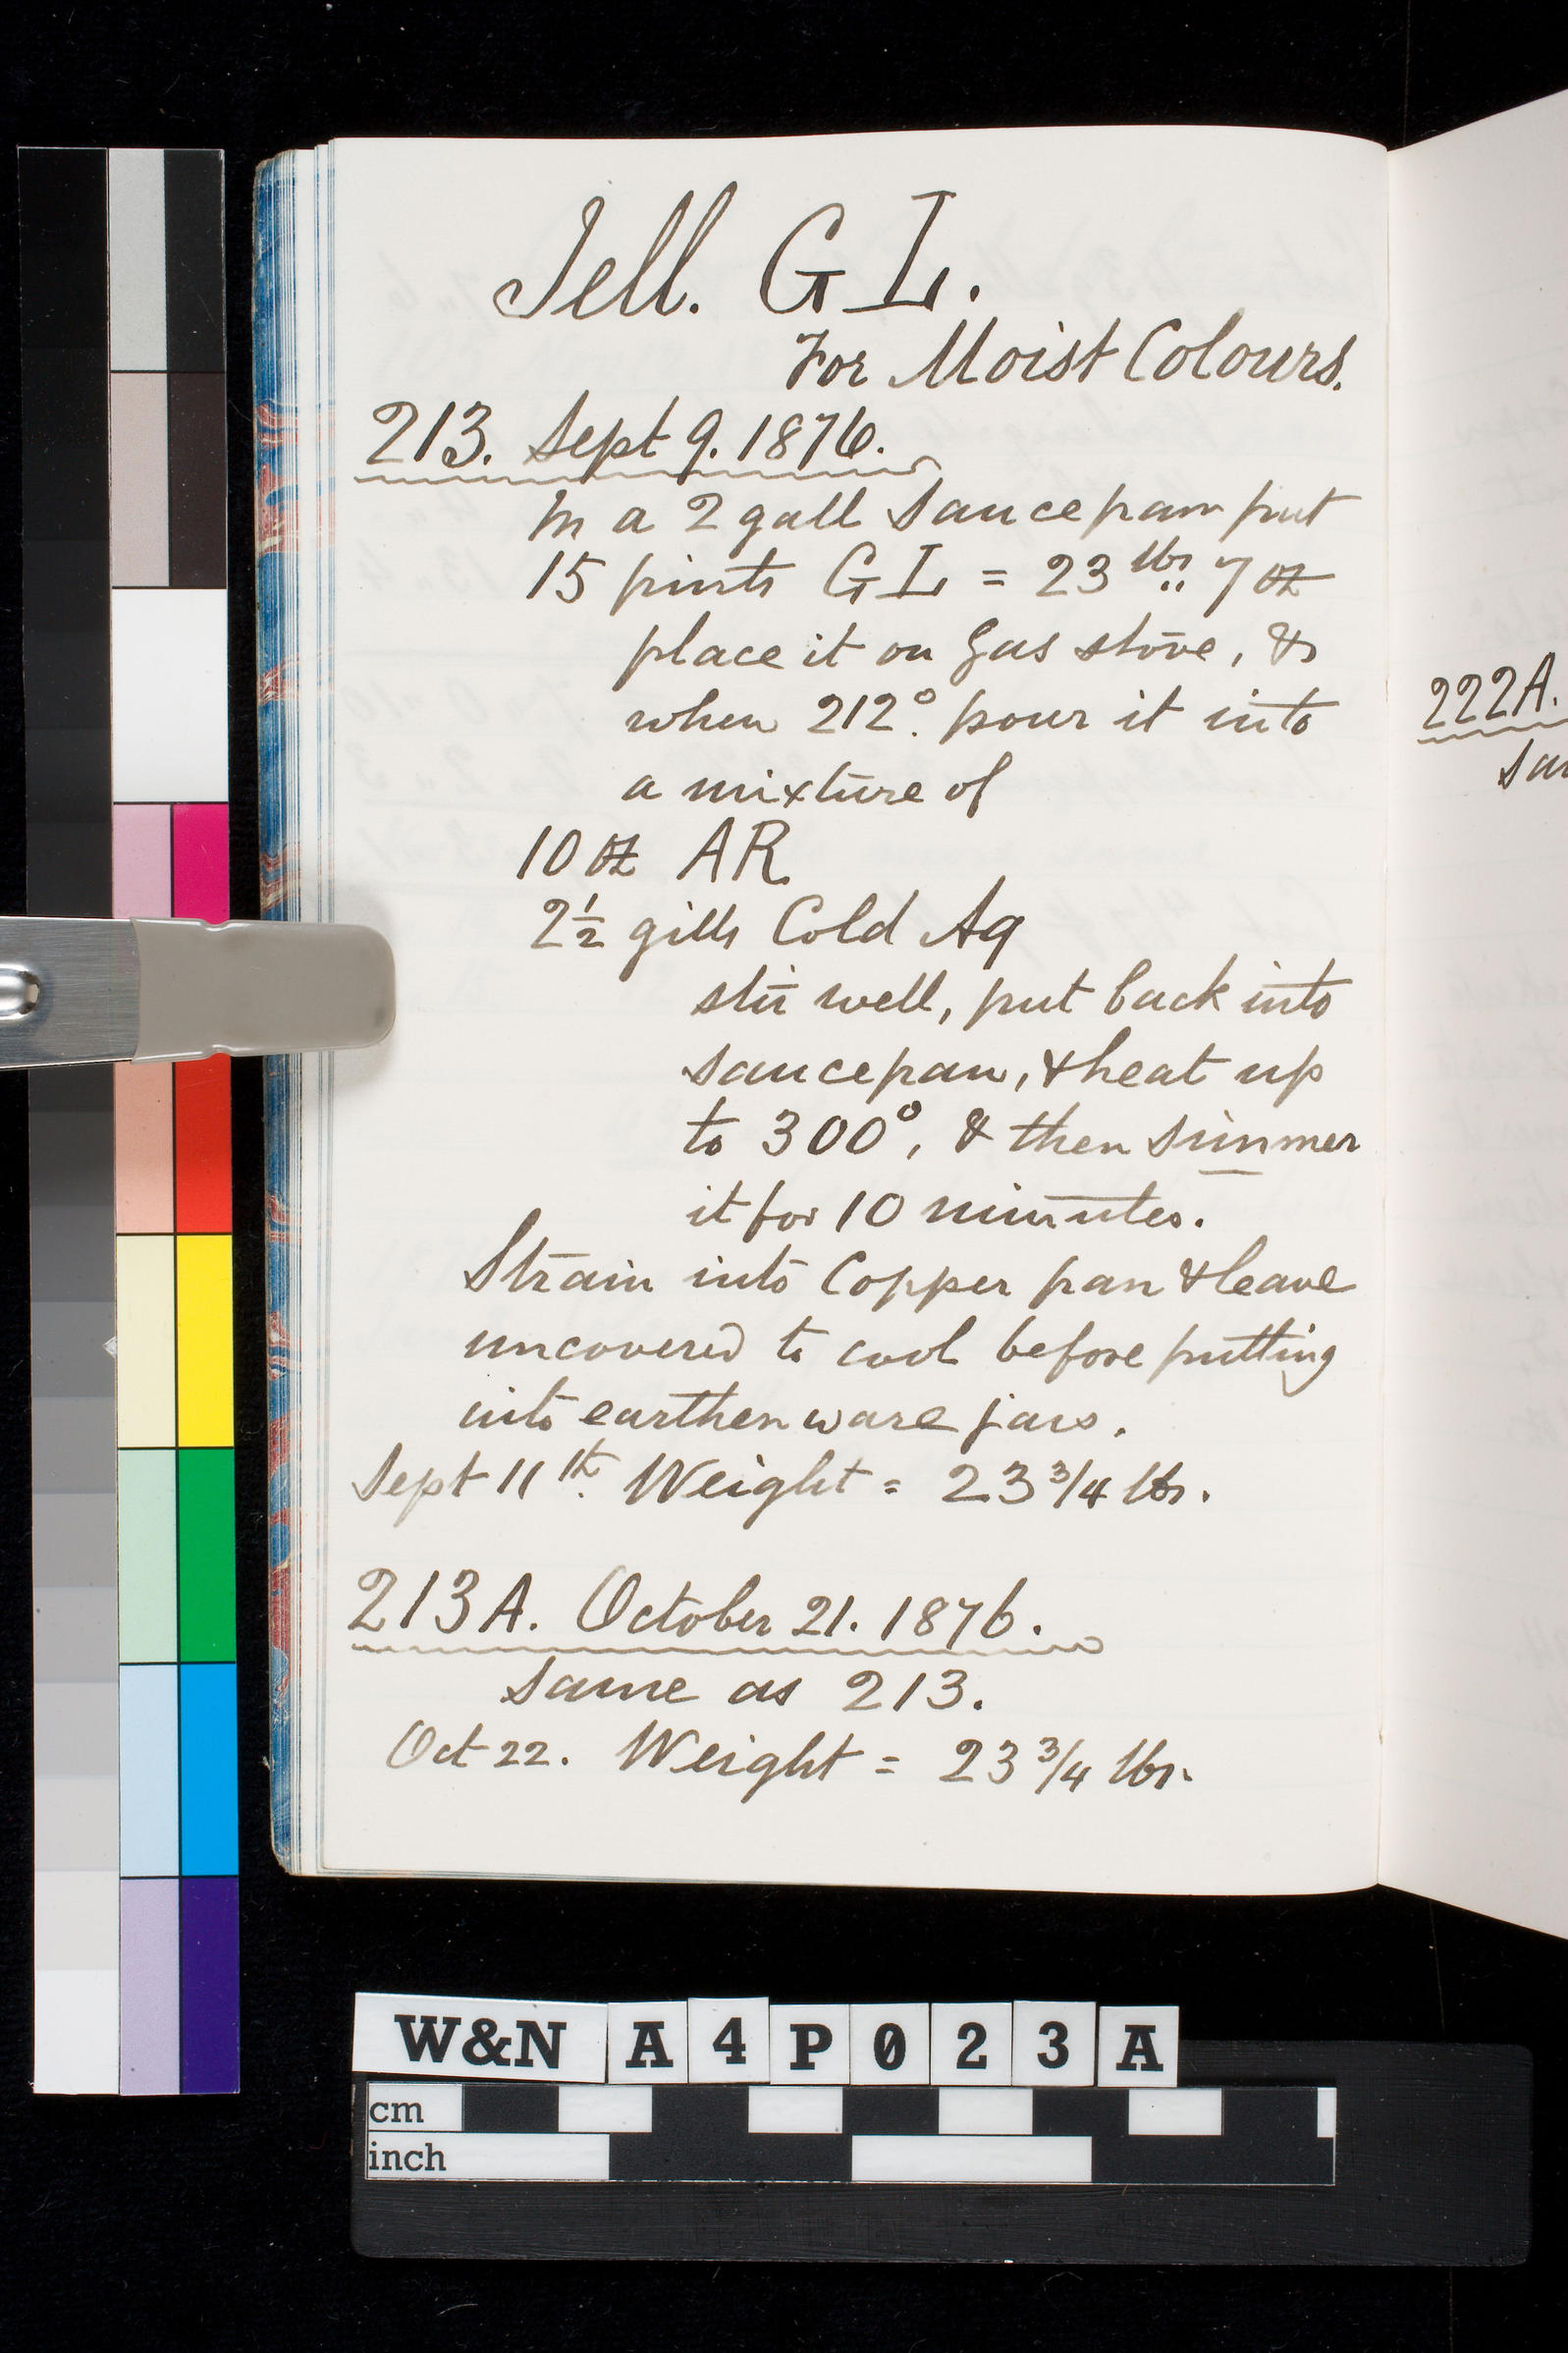 Jell. GL.
For Moist Colours.
213. Sept 9. 1876.
In a 2 gall Saucepan put
15 pints GL = 23 lbs.. 7 oz
place it on Gas stove, &
when 212°. pour it into
a mixture of
10 oz AR
2½ gills Cold Aq
stir well, put back into
saucepan, & heat up
to 300°, & then simmer
it for 10 minutes.
Strain into Copper pan & leave
uncovered to cool before putting
into earthenware jars.
Sept 11th. Weight = 23 3/4 lbs.
213A. October 21. 1876.
Same as 213.
Oct 22. Weight = 23 3/4 lbs.
222A.
W&N A4P023A
cm
inch